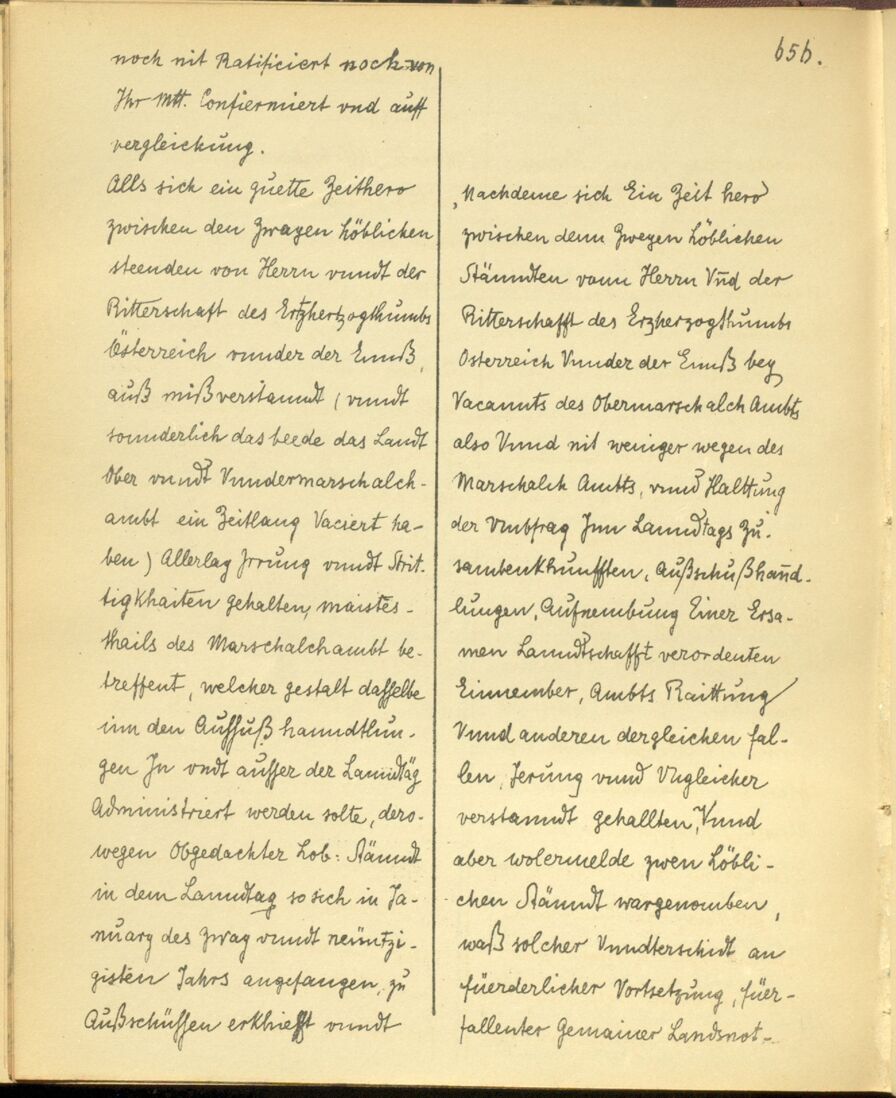 656.
noch nit Ratificiert noch von
Ihr Mtt. Confiermiert vnd auff
vergleichung.
Alls sich ein guette Zeithero
zwischen den zwayen höblichen
steenden von Herrn vnndt der
Ritterschaft des Ertzhertzogthumbs
Österreich vnnder der Ennß,
auß mißverstanndt (vnndt
sonnderlich das beede das Landt
Ober vnndt Vnndermarschalch-
ambt ein Zeitlang Vaciert ha-
ben) Allerlay Irrung vnndt Strit-
tigkhaiten gehalten, maistes-
thails des Marschalchambt be-
treffent, welcher gestalt dasselbe
inn den Aussuß hanndtlun-
gen In vndt ausser der Lanndtäg
Administriert werden solte, dero-
wegen Obgedachter Lob: Stänndt
in dem Lanndtag so sich in Ja-
nuary des zway vnndt neüntzi-
gisten Jahrs angefangen, zu
Außschüssen erkhiest vnndt
Nachdeme sich Ein Zeit hero
zwischen denn zweyen Löblichen
Stänndten vonn Herrn Vnd der
Ritterschafft des Erzherzogthumbs
Osterreich Vnnder der Ennß bey
Vacannts des Obermarschalch Ambts
also Vnnd nit weniger wegen des
Marschalch Ambts, vnnd Halttung
der Vmbfrag Inn Lanndtags Zu-
sambenkhunfften, Außschußhand-
lungen, Aufnembung Einer Ersa-
men Lanndtschafft verordenten
Einnember, Ambts Raittung
Vnnd anderen dergleichen fal-
len, Jerung vnnd Vngleicher
verstanndt gehallten, Vnnd
aber wolermelde zwen Löbli-
chen Stänndt wargenomben,
waß solcher Vnndterschidt an
füerderlicher Vortsetzung, füer-
fallenter Gemainer Landsnot-